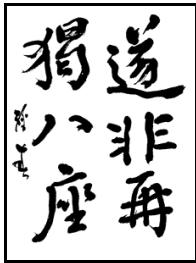 遂非再
獨八座